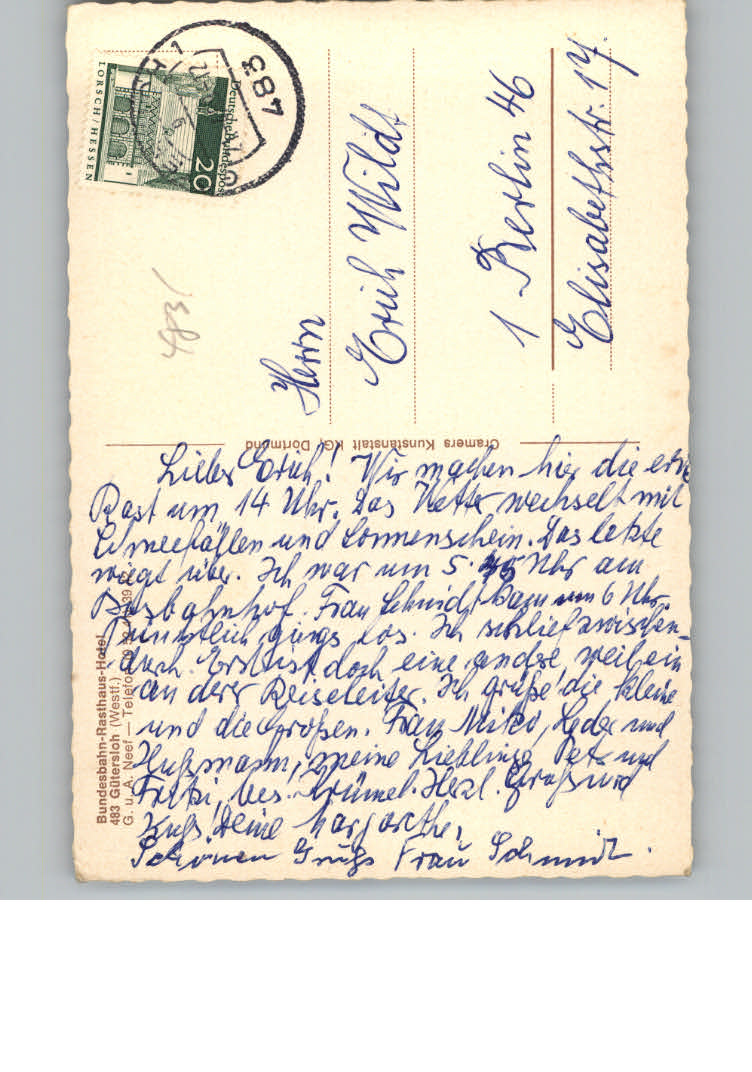 Deutsche Bundespost
20
LORSCH/HESSEN
483
483
Herrn
Erich Wildt
1 Berlin 46
Elisabethstr. 17.
Cramers Kunstanstalt KG, Dortmund
Bundesbahn-Rasthaus-Hotel
483 Gütersloh (Westf.)
G. u. A. Neef — Telefon
Lieber Erich! Wir machen hier die erste
Rast um 14 Uhr. Das Wetter wechselt mit
Schneefällen und Sonnenschein. Das letzte
wiegt über. Ich war um 5.45 Uhr am
Busbahnhof. Frau Schmidt kam um 6 Uhr.
Pünktlich gings los. Ich schlief zwischen-
durch. Erst ist doch eine andre, weil ein
anderer Reiseleiter. Ich grüße die kleine
und die Großen. Frau Miko, Leder und
Hußmann, meine Lieblinge Peter und
Fritzi, bes. Krümel. Herzl. Gruß und
Kuß! Deine Margarethe.
Schönen Gruß Frau Schmidt.